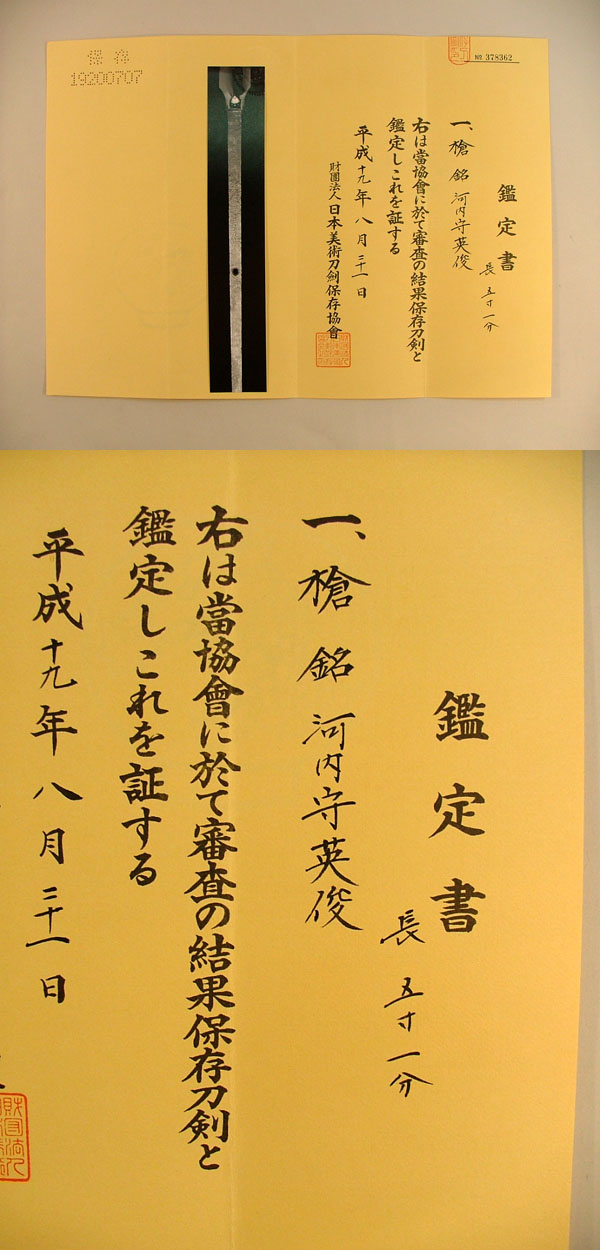 保存
19200707
№ 378362
鑑定書
長 五寸一分
一、槍 銘 河内守英俊
右は當協會に於て審査の結果保存刀剣と
鑑定しこれを証する
平成十九年八月二十一日
財團法人日本美術刀劍保存協會
鑑定書
長 五寸一分
一、槍 銘 河内守英俊
右は當協會に於て審査の結果保存刀剣と
鑑定しこれを証する
平成十九年八月二十一日